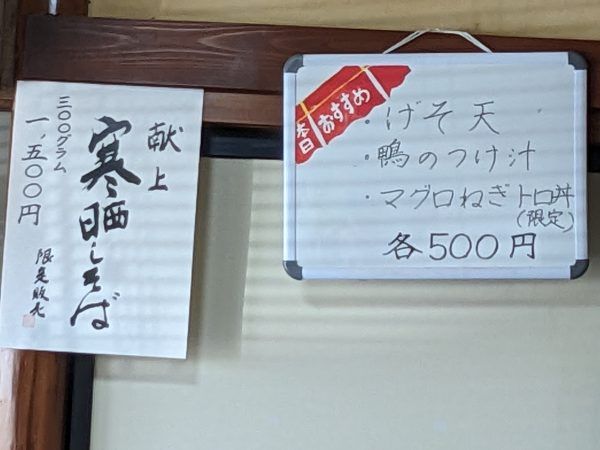 献上
寒晒しそば
三〇〇グラム
一、五〇〇円
限定販売
本日
おすすめ
・げそ天
・鴨のつけ汁
・マグロねぎトロ丼
(限定)
各500円